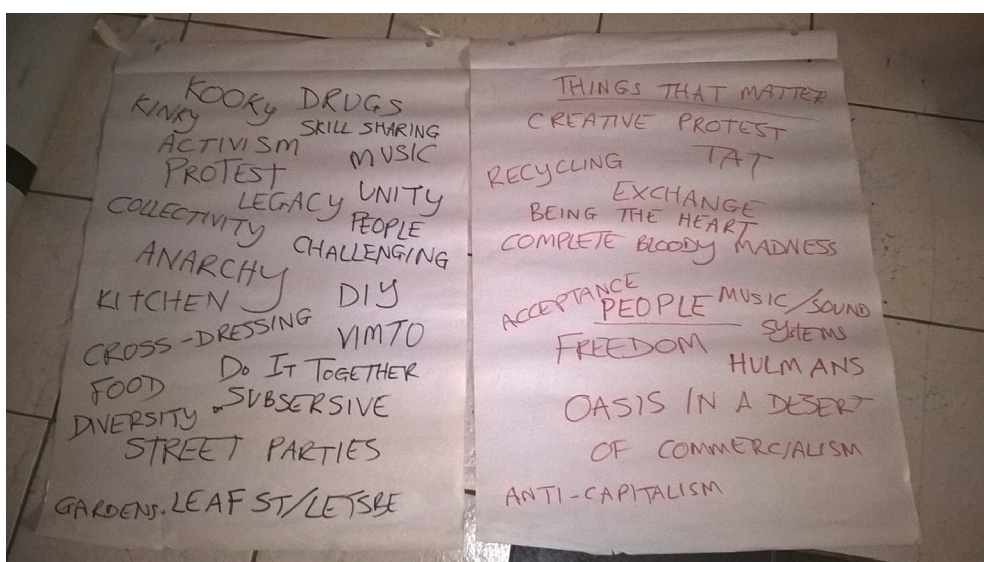 KOOKY DRUGS
KINKY
SKILL SHARING
ACTIVISM MUSIC
PROTEST
LEGACY UNITY
COLLECTIVITY PEOPLE
CHALLENGING
ANARCHY
KITCHEN DIY
CROSS-DRESSING VIMTO
DO IT TOGETHER
FOOD
SUBSERSIVE
DIVERSITY
STREET PARTIES
GARDENS. LEAF ST/LETSBE
THINGS THAT MATTER
CREATIVE PROTEST
TAT
RECYCLING
EXCHANGE
BEING THE HEART
COMPLETE BLOODY MADNESS
ACCEPTANCE PEOPLE MUSIC/SOUND
SYSTEMS
FREEDOM
HULMANS
OASIS IN A DESERT
OF COMMERCIALISM
ANTI-CAPITALISM